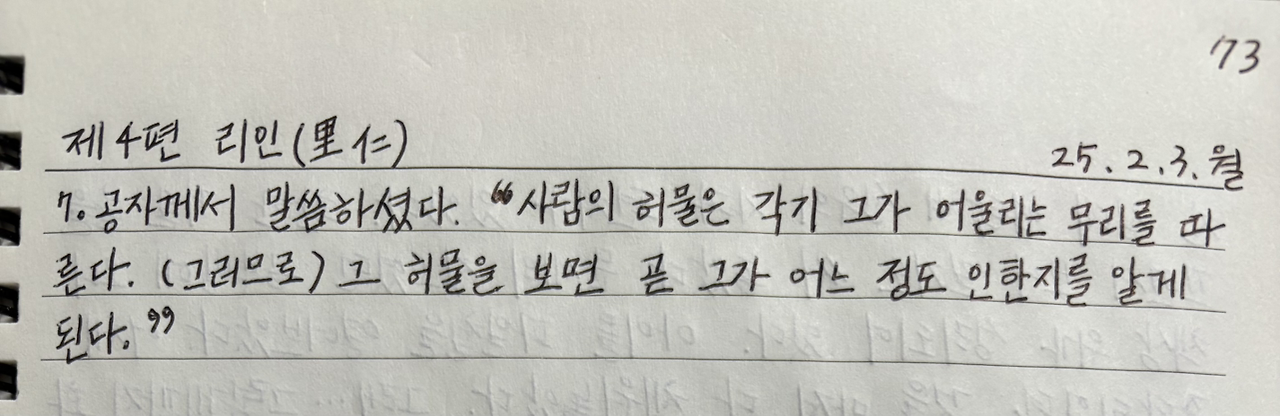 '73
제4편 리인(里仁)
25.2.3.월
7. 공자께서 말씀하셨다. "사람의 허물은 각기 그가 어울리는 무리를 따
른다. (그러므로) 그 허물을 보면 곧 그가 어느 정도 인한지를 알게
된다."